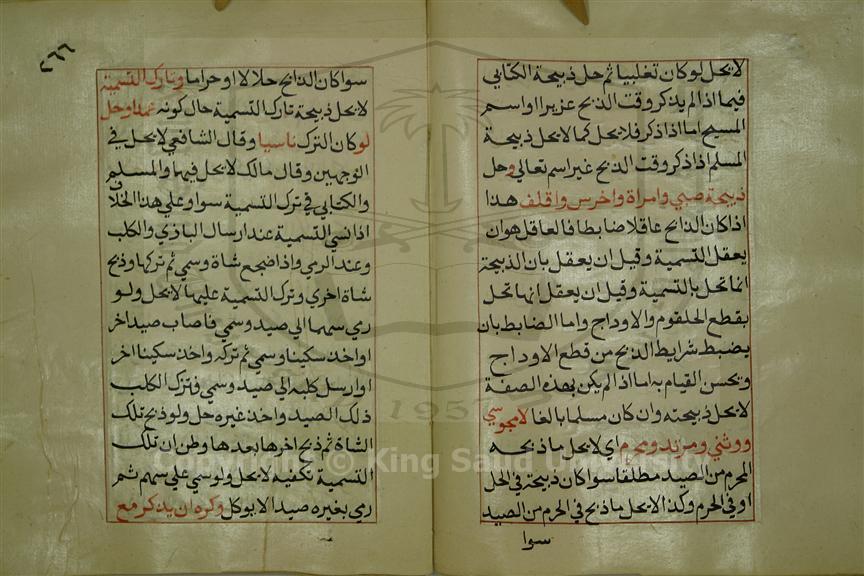 لا يحل لو كان تغلبيا ثم حل ذبيحة الكتابي
فيما اذا لم يذكر وقت الذبح عزيرا او اسم
المسيح اما اذا ذكر فلا يحل كما لا يحل ذبيحة
المسلم اذا ذكر وقت الذبح غير اسم تعالي وحل
ذبيحة صبي وامراة واخرس واقلف هذا
اذا كان الذابح عاقلا ضابطا فالعاقل هو ان
يعقل التسمية وقيل ان يعقل بان الذبيحة
انما تحل بالتسمية وقيل ان يعقل انها تحل
بقطع الحلقوم والاوداج واما الضابط بان
يضبط شرايط الذبح من قطع الاوداج
ويحسن القيام به اما اذا لم يكن بهذه الصفة
لا يحل ذبيحته وان كان مسلما بالغا لا مجوسي
ووثني ومرتد ومحرم اي لا يحل ما ذبحه
المحرم من الصيد مطلقا سوا كان ذبيحة في الحل
او في الحرم وكذا لا يحل ما ذبح في الحرم من الصيد
سوا
٢٦٦
سوا كان الذابح حلالا او حراما وتارك التسمية
لا يحل ذبيحة تارك التسمية حال كونه عمدا وحل
لو كان الترك ناسيا وقال الشافعي لا يحل في
الوجهين وقال مالك لا يحل فيهما والمسلم
والكتابي في ترك التسمية سوا وعلي هذا الخلاف
اذا نسي التسمية عند ارسال البازي والكلب
وعند الرمي واذا اضجع شاة وسمي ثم تركها وذبح
شاة اخري وترك التسمية عليها لا يحل ولو
رمي سهما الي صيد وسمي فاصاب صيد اخر
او اخذ سكينا وسمي ثم تركه واخذ سكينا اخر
او ارسل كلبه الي صيد وسمي فترك الكلب
ذلك الصيد واخذ غيره حل ولو ذبح تلك
الشاة ثم ذبح اخرها بعدها وظن ان تلك
التسمية تكفيه لا يحل ولو سمي علي سهم ثم
رمي بغيره صيدا لا يوكل وكره ان يذكر مع
1957
Copyright © King Saud University